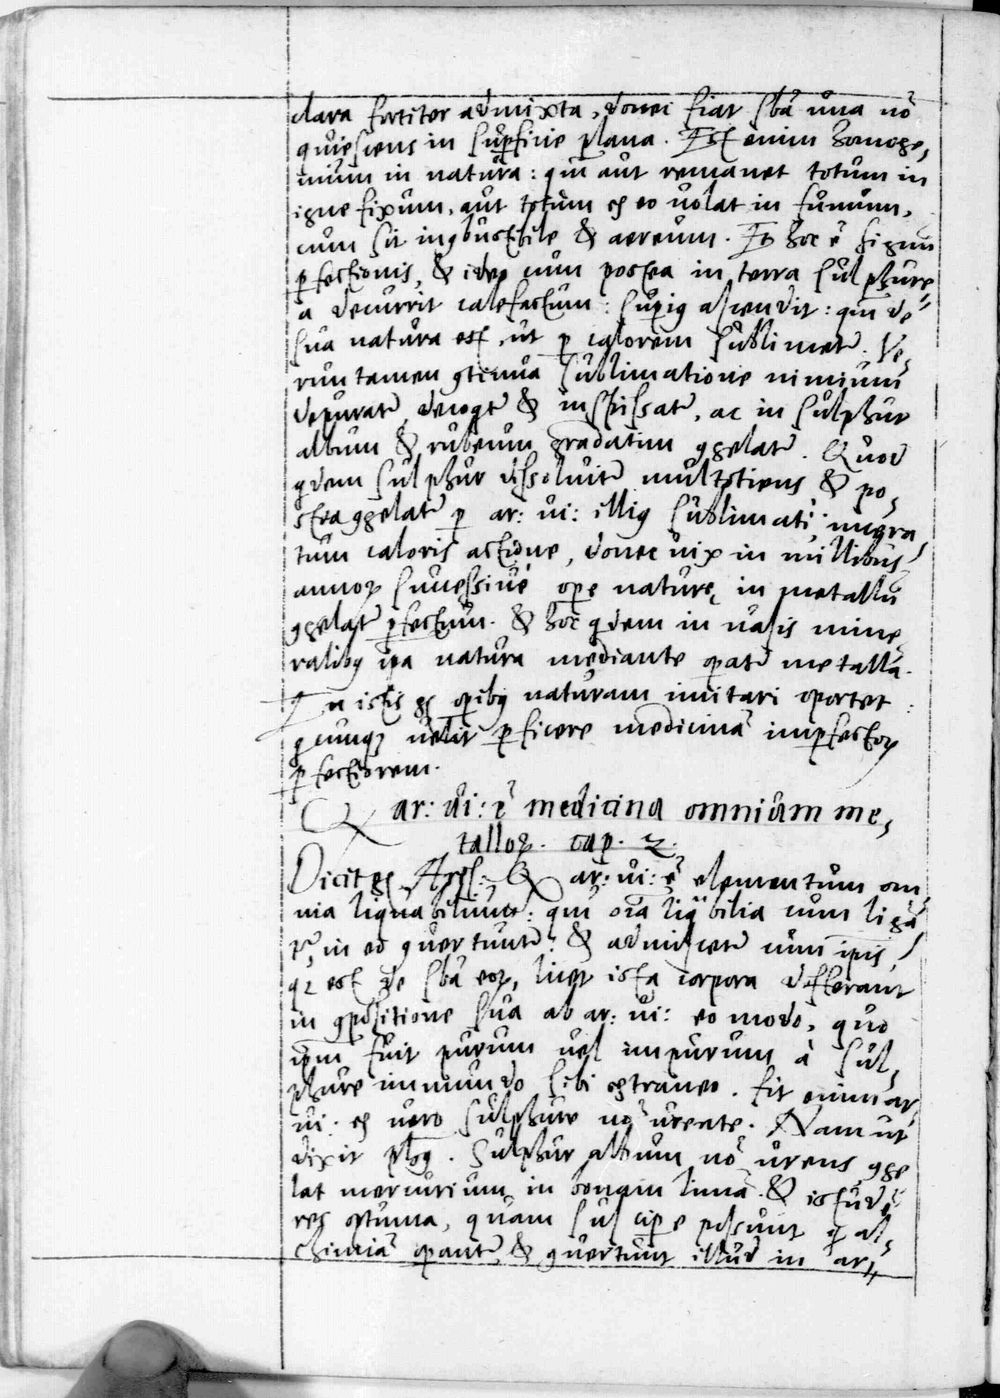 clara fortiter admixta, donec fiat sbã una nõ
quiescens in suꝑficie plana. Est enim homoge,
nium in natura: qm̃ aut remanet totum in
igne fixum, aut totum ex eo volat in fumum,
cum sit inꝯbustibile & aereum. Et hoc ẽ signũ
ꝑfectionis, & ideo cum postea in terra sulphure
a decurrit calefactum: suꝑiꝰ ascendit: qm̃ de
sua natura est, ut ꝑ calorem sublimet̃. Ve,
runtamen ꝯtinua sublimatione nimium
depurat̃, decoqt̃ & inspissat̃, ac in sulphur
album & rubeum gradatim ꝯgelat̃. Quod
qdem sulphur dissolvit̃ multotiens & po,
stea ꝯgelat̃ ꝑ ar: vi: illiꝰ sublimati; migra,
tum caloris actione, donec vix in millibus
annoꝝ successive oꝑe nature, in metallũ
ꝯgelat̃ ꝑfectum. & hoc qdem in vasis mine,
ralibꝰ ipa natura mediante oꝑat̃ metalla.
In istis gͦ oꝑibꝰ naturam imitari oportet
qcunqꝫ velit ꝑficere medicinã imꝑfectoꝝ
ꝑfectiorem.
Q ar: vi: ẽ medicina omnium me,
talloꝝ. cap. 2.
Dicit gͦ Arꝭ: Q ar: vi: ẽ elementum om
nia liquabilium: qm̃ oĩa liqᵃbilia cum liqã,
t̃, in eo ꝯvertunt̃: & admiscet̃ cum ipis,
qꝫ est de sbã eoꝝ, licet ista corpora differant
in ꝯpositione sua ab ar: vi: eo modo, quo
ipm̃ fuit purum vel impurum à sul,
phure immundo sibi extraneo. fit enim ar,
vi: ex vero sulphure nõ urente. Nam ut
dixit phꝰ. Sulphur album nõ urens, ꝯge
lat mercurium in bonam lunã. & istud ẽ
res optima, quam suscipere possunt q al,
chimiã oꝑant̃, & ꝯvertunt illud in ar,